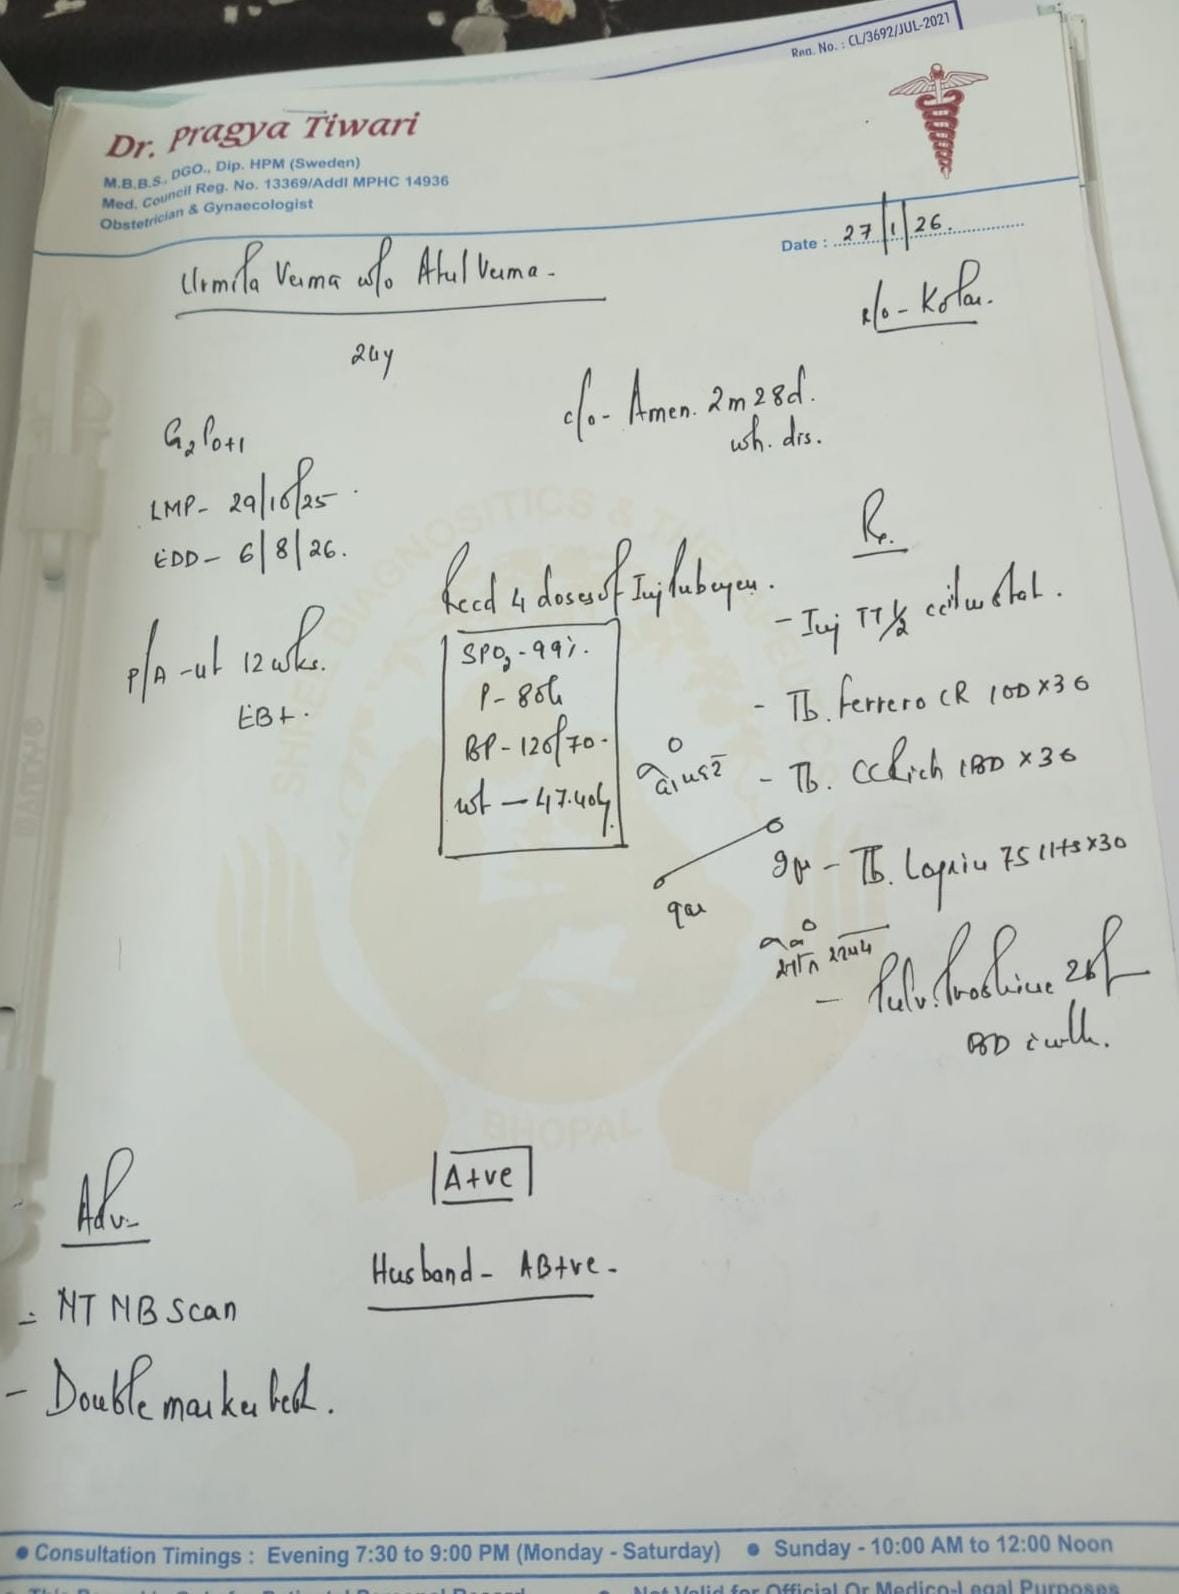 Reg. No. : CL/3692/JUL-2021
Dr. Pragya Tiwari
M.B.B.S., DGO., Dip. HPM (Sweden)
Med. Council Reg. No. 13369/Addl MPHC 14936
Obstetrician & Gynaecologist
Date : 27/1/26
Urmila Verma w/o Atul Verma -
R/o - Kolar.
24y
c/o - Amen. 2m 28d.
wh. dis.
G2P0+1
LMP - 29/10/25
EDD - 6/8/26.
Rx.
Recd 4 doses of Inj
- Inj TT 1/2 cc i/m stat.
P/A - ut 12 wks.
EB+.
SPO2 - 99%.
P -
BP - 120/70.
wt - 47.40kg
- Tb. Ferrero CR 1OD x 30
- Tb. CCRich 1BD x 30
- Tb. 75 1HS x 30
- Pulv.
BD c
A+ve
Husband - AB+ve -
Adv-
- NT NB Scan
- Double marker test.
SHREE DIAGNOSITICS & THERAPEUTICS
BHOPAL
• Consultation Timings : Evening 7:30 to 9:00 PM (Monday - Saturday) • Sunday - 10:00 AM to 12:00 Noon
• Not Valid for Official Or Medico-Legal Purposes